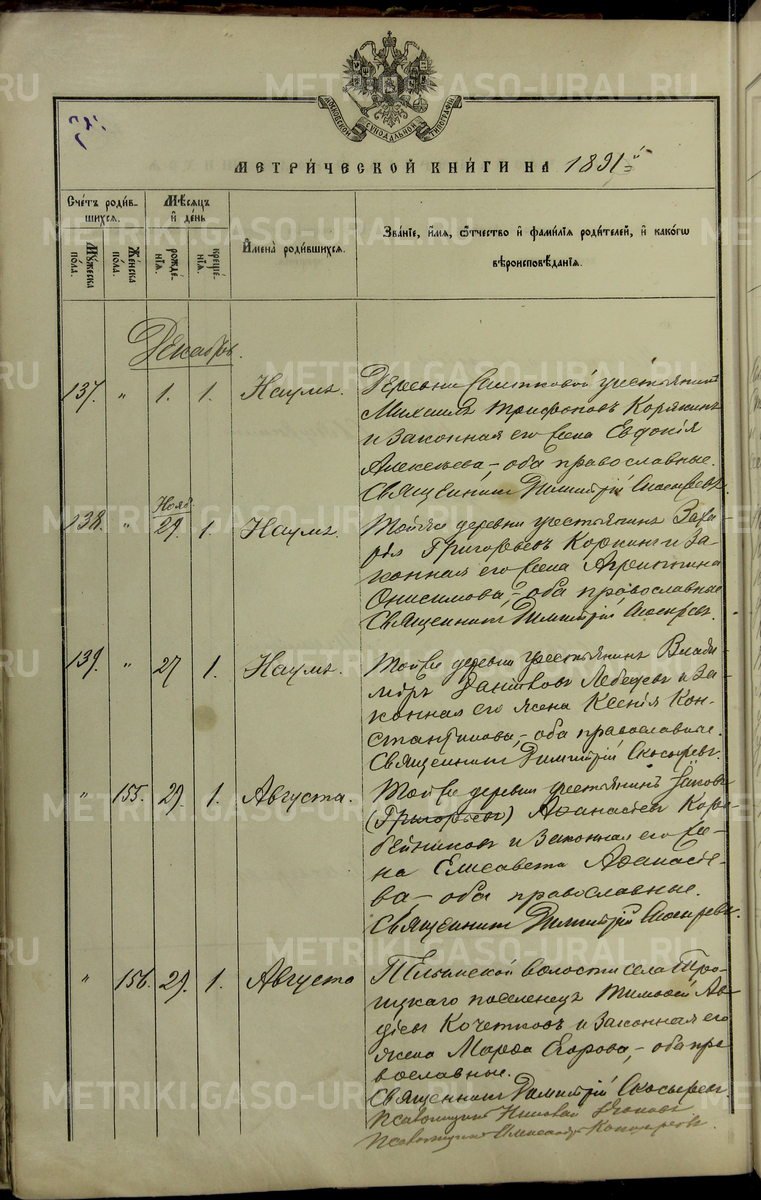 МОСКОВСКОЙ СѴНОДАЛЬНОЙ ТИПОГРАФІИ
МЕТРИ́ЧЕСКОЙ КНИ́ГИ НА 1891й
Сче́тъ роди́в-
шихся.
Мѣ́сяцъ
и҆ де́нь
Мꙋ́жеска
по́ла.
Же́нска
по́ла.
рожде́-
нїя.
креще́-
нїя.
И҆мена̀ роди́вшихся.
Зва́нїе, и҆́мя, ѻ҆́тчество и҆ фами́лїя роди́телей, и҆ како́гѡ
вѣроисповѣ́данїя.
Декабрь.
137. " 1. 1. Наумъ.
Деревни крестьянинъ
Михаилъ Трифоновъ Корякинъ
и законная его жена Евдокія
Алексѣева, – оба православные.
Священникъ Димитрій Скосыревъ.
Нояб
138. " 29. 1. Наумъ.
Той же деревни крестьянинъ Заха-
рія Григорьевъ и за-
конная его жена Агриппина
Онисимова, – оба православные
Священникъ Димитрій Скосыревъ.
139. " 27 1. Наумъ.
Той же деревни крестьянинъ Влади-
міръ Даніиловъ Лебедевъ и за-
конная его жена Ксенія Кон-
стантинова, – оба православные.
Священникъ Димитрій Скосыревъ.
" 155. 29. 1. Августа.
Той же деревни крестьянинъ Іаковъ
(Григорьевъ) Аѳанасьевъ Коро-
бейниковъ и законная его же-
на Елисавета Аѳанасіе-
ва – оба православные.
Священникъ Димитрій Скосыревъ.
" 156. 29. 1. Августа
Пелымской волости села Тро-
ицкаго поселенецъ Тимоѳей Ав-
дѣевъ Кочетковъ и законная его
жена Марѳа Егорова, – оба пра-
вославные.
Священникъ Димитрій Скосыревъ.
Псаломщикъ Николай Поповъ
Псаломщикъ Александръ
METRIKI.GASO-URAL.RU